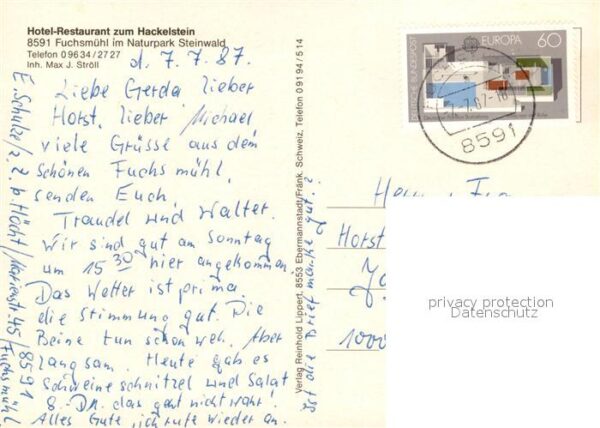 Hotel-Restaurant zum Hackelstein
8591 Fuchsmühl im Naturpark Steinwald
Telefon 09634/2727
Inh. Max J. Ströll
d. 7.7.87.
Liebe Gerda lieber
Horst, lieber Michael
viele Grüsse aus dem
schönen Fuchsmühl,
senden Euch.
Traudel und Walter.
Wir sind gut am Sonntag
um 15 30 hier angekommen.
Das Wetter ist prima
die Stimmung gut. Die
Beine tun schon weh. Aber
langsam. Heute gab es
Schweineschnitzel und Salat
8.-DM. das geht nicht wahr!
Alles Gute, ich rufe wieder an.
E. Schulze / z.Z. b. Höcht / Marienstr. 45 / 8591 Fuchsmühl
Verlag Reinhold Lippert, 8553 Ebermannstadt/Fränk. Schweiz, Telefon 09194/514
Ist die Briefmarke gut?
DEUTSCHE BUNDESPOST
EUROPA 60
8591
Horst
1000
privacy protection
Datenschutz